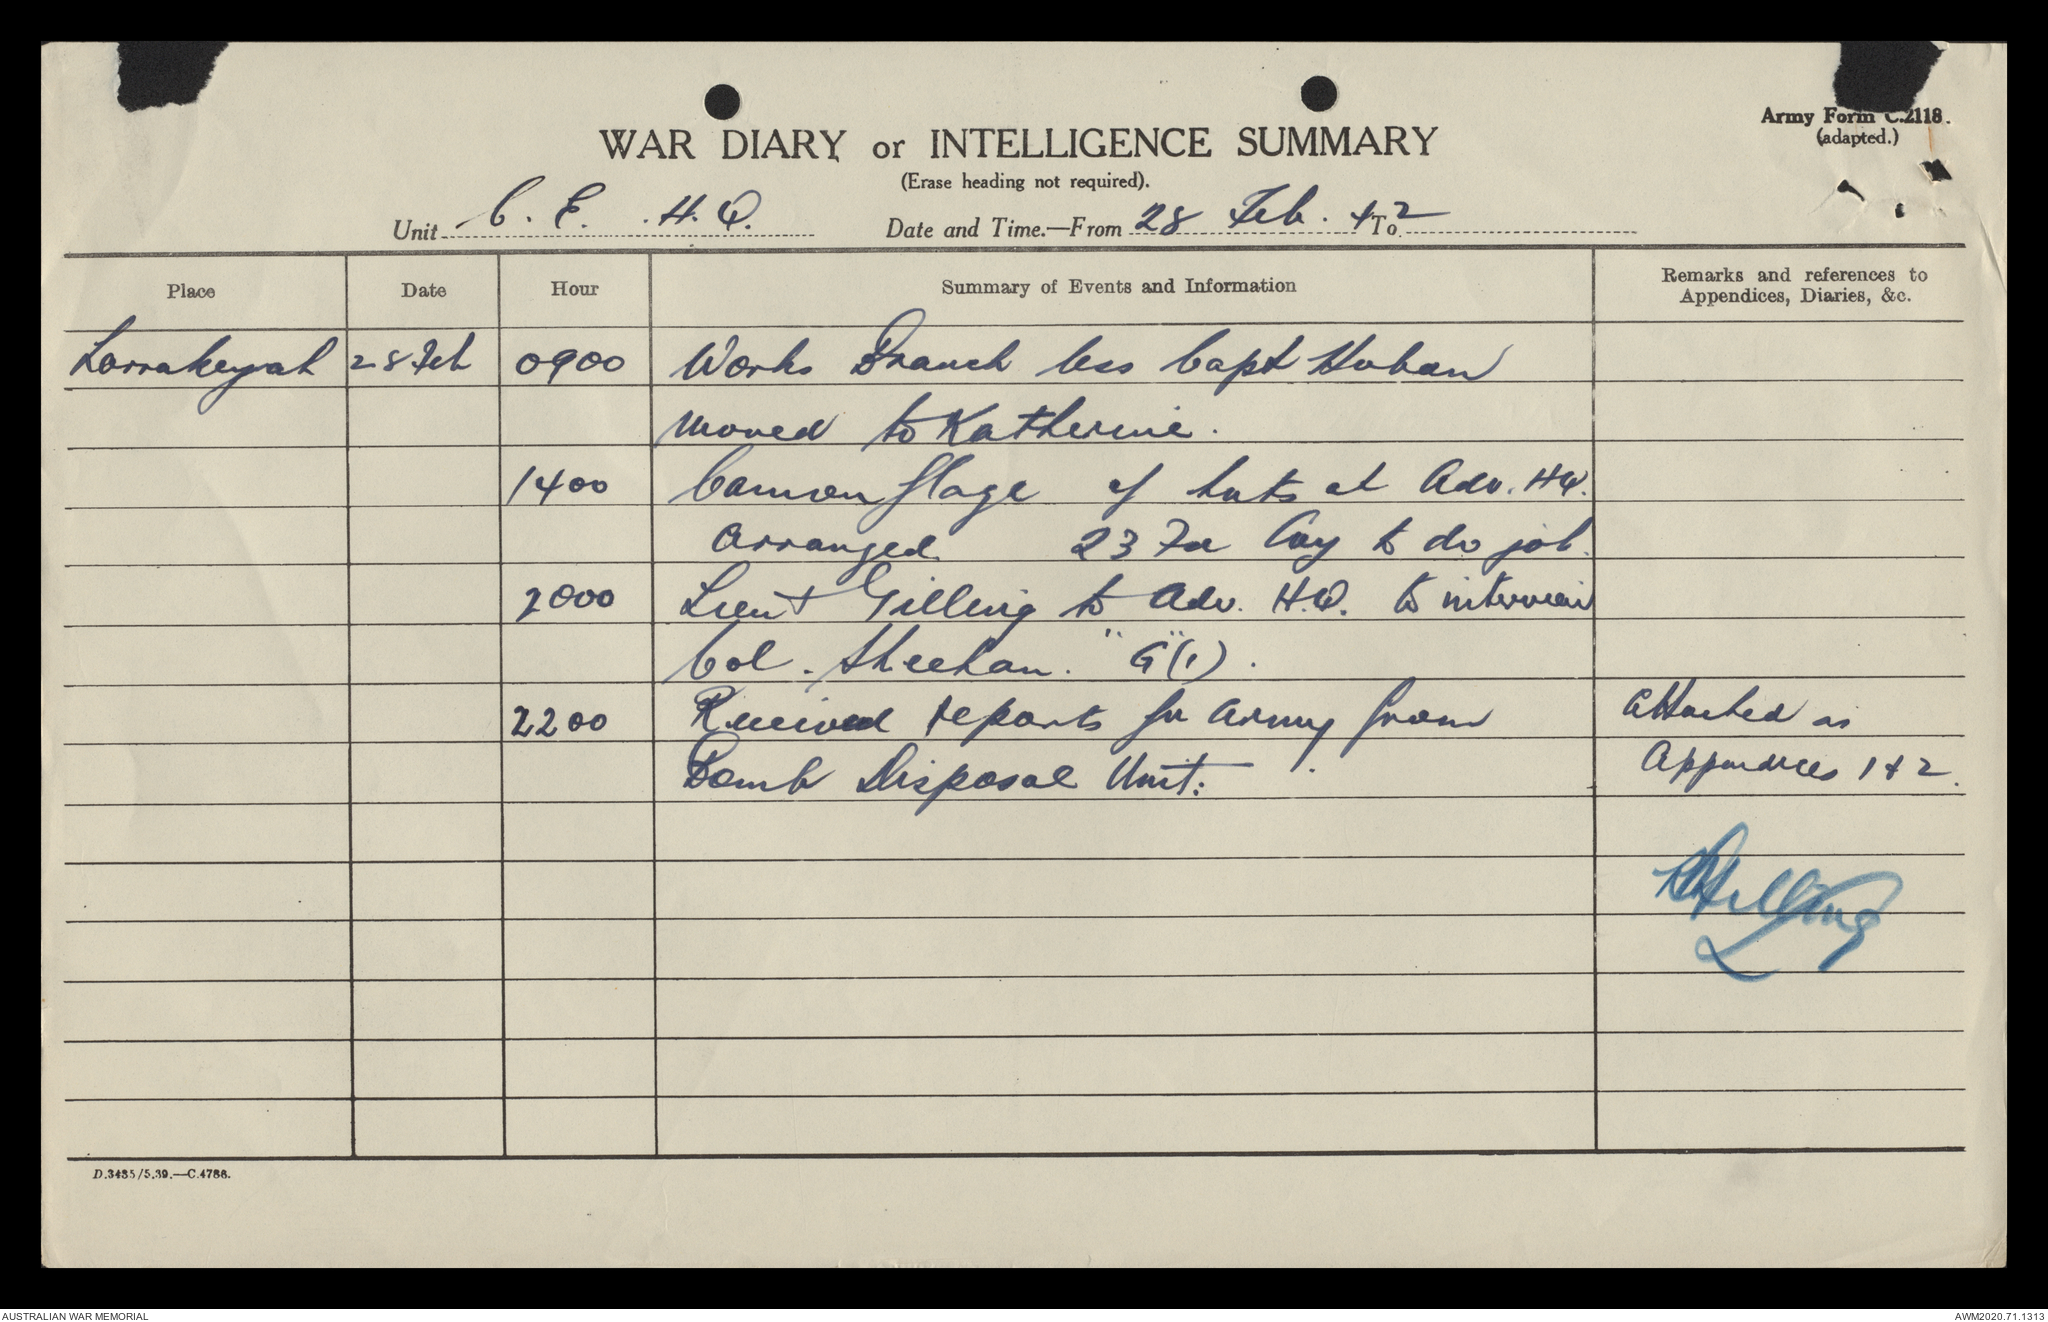 Army Form C.2118.
(adapted.)
WAR DIARY or INTELLIGENCE SUMMARY
(Erase heading not required).
Unit C. E. H.Q. Date and Time.—From 28 Feb. 42 To
Place Date Hour Summary of Events and Information Remarks and references to
Appendices, Diaries, &c.
Larrakeyah 28 Feb 0900 Works Branch less Capt Huban
moved to Katherine.
1400 Camouflage of huts at Adv. HQ.
arranged. 23 Fd Coy to do job.
2000 Lieut Gilling to Adv. H.Q. to interview
Col. Sheehan. "G"(1).
2200 Received reports for Army from Attached as
Bomb Disposal Unit. Appendices 1 & 2.
Gilling
D.3435/5.39.—C.4788.
AUSTRALIAN WAR MEMORIAL AWM2020.71.1313